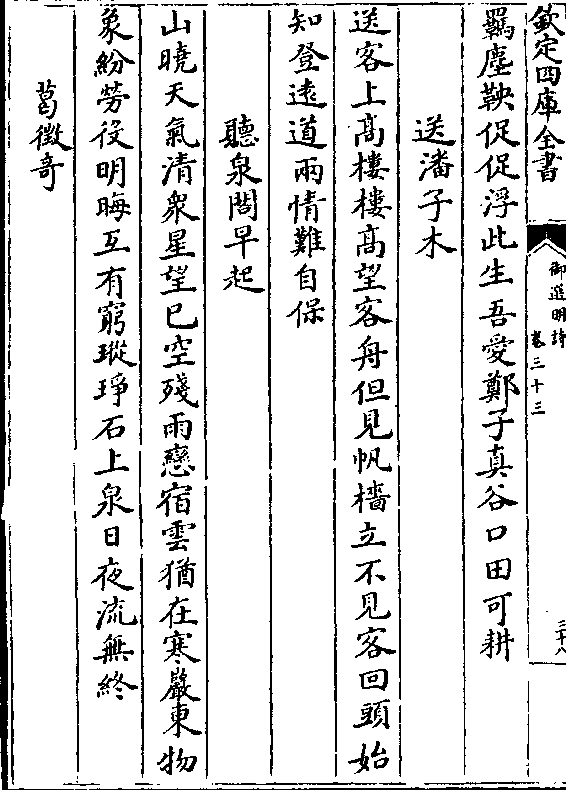 欽定四庫全書
御選明詩
卷三十三
三十八
羈塵鞅促促浮此生吾愛鄭子真谷口田可耕
送潘子木
送客上高樓樓高望客舟但見帆檣立不見客回頭始
知登遠道兩情難自保
聽泉閣早起
山曉天氣清衆星望已空殘雨戀宿雲猶在寒巖東物
象紛勞役明晦互有窮瑽琤石上泉日夜流無終
葛徵奇